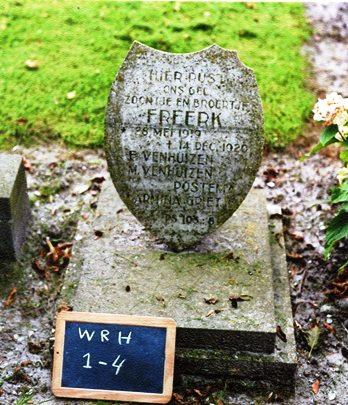 HIER RUST
ONS GEL.
ZOONTJE EN BROERTJE
FREERK
26 MEI 1919
14 DEC. 1926
E. VENHUIZEN
M. VENHUIZEN
POSTEMA
PS 103:8
WRH
1-4